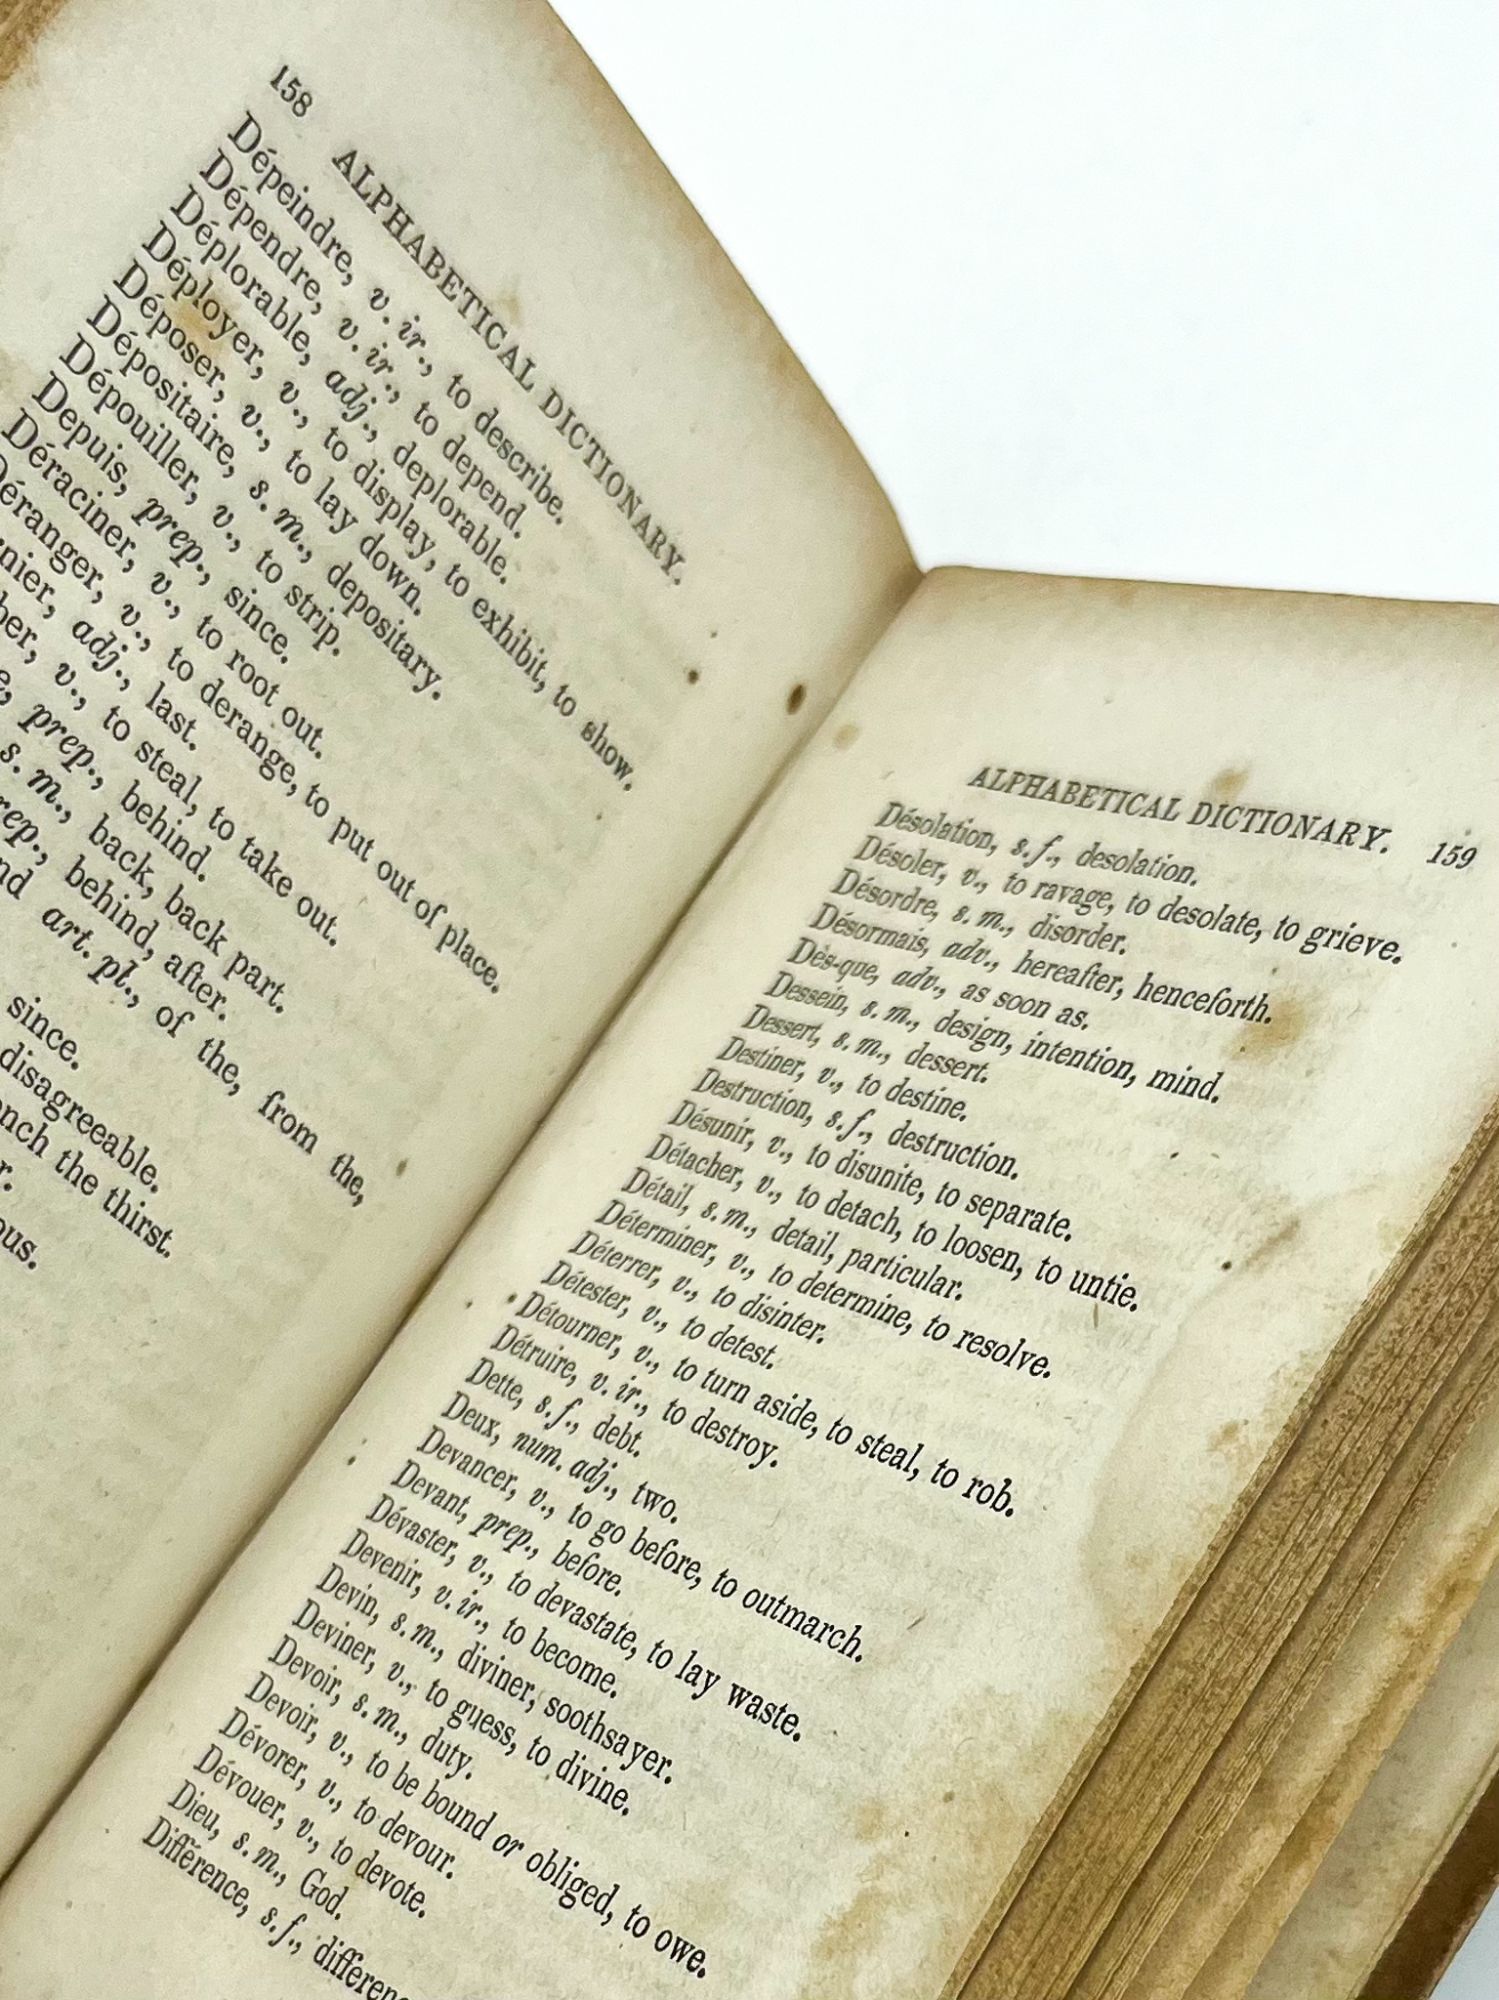 158 ALPHABETICAL DICTIONARY.
Dépeindre, v. ir., to describe.
Dépendre, v. ir., to depend.
Déplorable, adj., deplorable.
Déployer, v., to display, to exhibit, to show.
Déposer, v., to lay down.
Dépositaire, s. m., depositary.
Dépouiller, v., to strip.
Depuis, prep., since.
Déraciner, v., to root out.
Déranger, v., to derange, to put out of place.
adj., last.
v., to steal, to take out.
prep., behind.
s. m., back, back part.
behind, after.
art. pl., of the, from the,
since.
disagreeable.
the thirst.
ALPHABETICAL DICTIONARY. 159
Désolation, s. f., desolation.
Désoler, v., to ravage, to desolate, to grieve.
Désordre, s. m., disorder.
Désormais, adv., hereafter, henceforth.
Dès-que, adv., as soon as.
Dessein, s. m., design, intention, mind.
Dessert, s. m., dessert.
Destiner, v., to destine.
Destruction, s. f., destruction.
Désunir, v., to disunite, to separate.
Détacher, v., to detach, to loosen, to untie.
Détail, s. m., detail, particular.
Déterminer, v., to determine, to resolve.
Déterrer, v., to disinter.
Détester, v., to detest.
Détourner, v., to turn aside, to steal, to rob.
Détruire, v. ir., to destroy.
Dette, s. f., debt.
Deux, num. adj., two.
Devancer, v., to go before, to outmarch.
Devant, prep., before.
Dévaster, v., to devastate, to lay waste.
Devenir, v. ir., to become.
Devin, s. m., diviner, soothsayer.
Deviner, v., to guess, to divine.
Devoir, s. m., duty.
Devoir, v., to be bound or obliged, to owe.
Dévorer, v., to devour.
Dévouer, v., to devote.
Dieu, s. m., God.
Différence, s. f., differenc